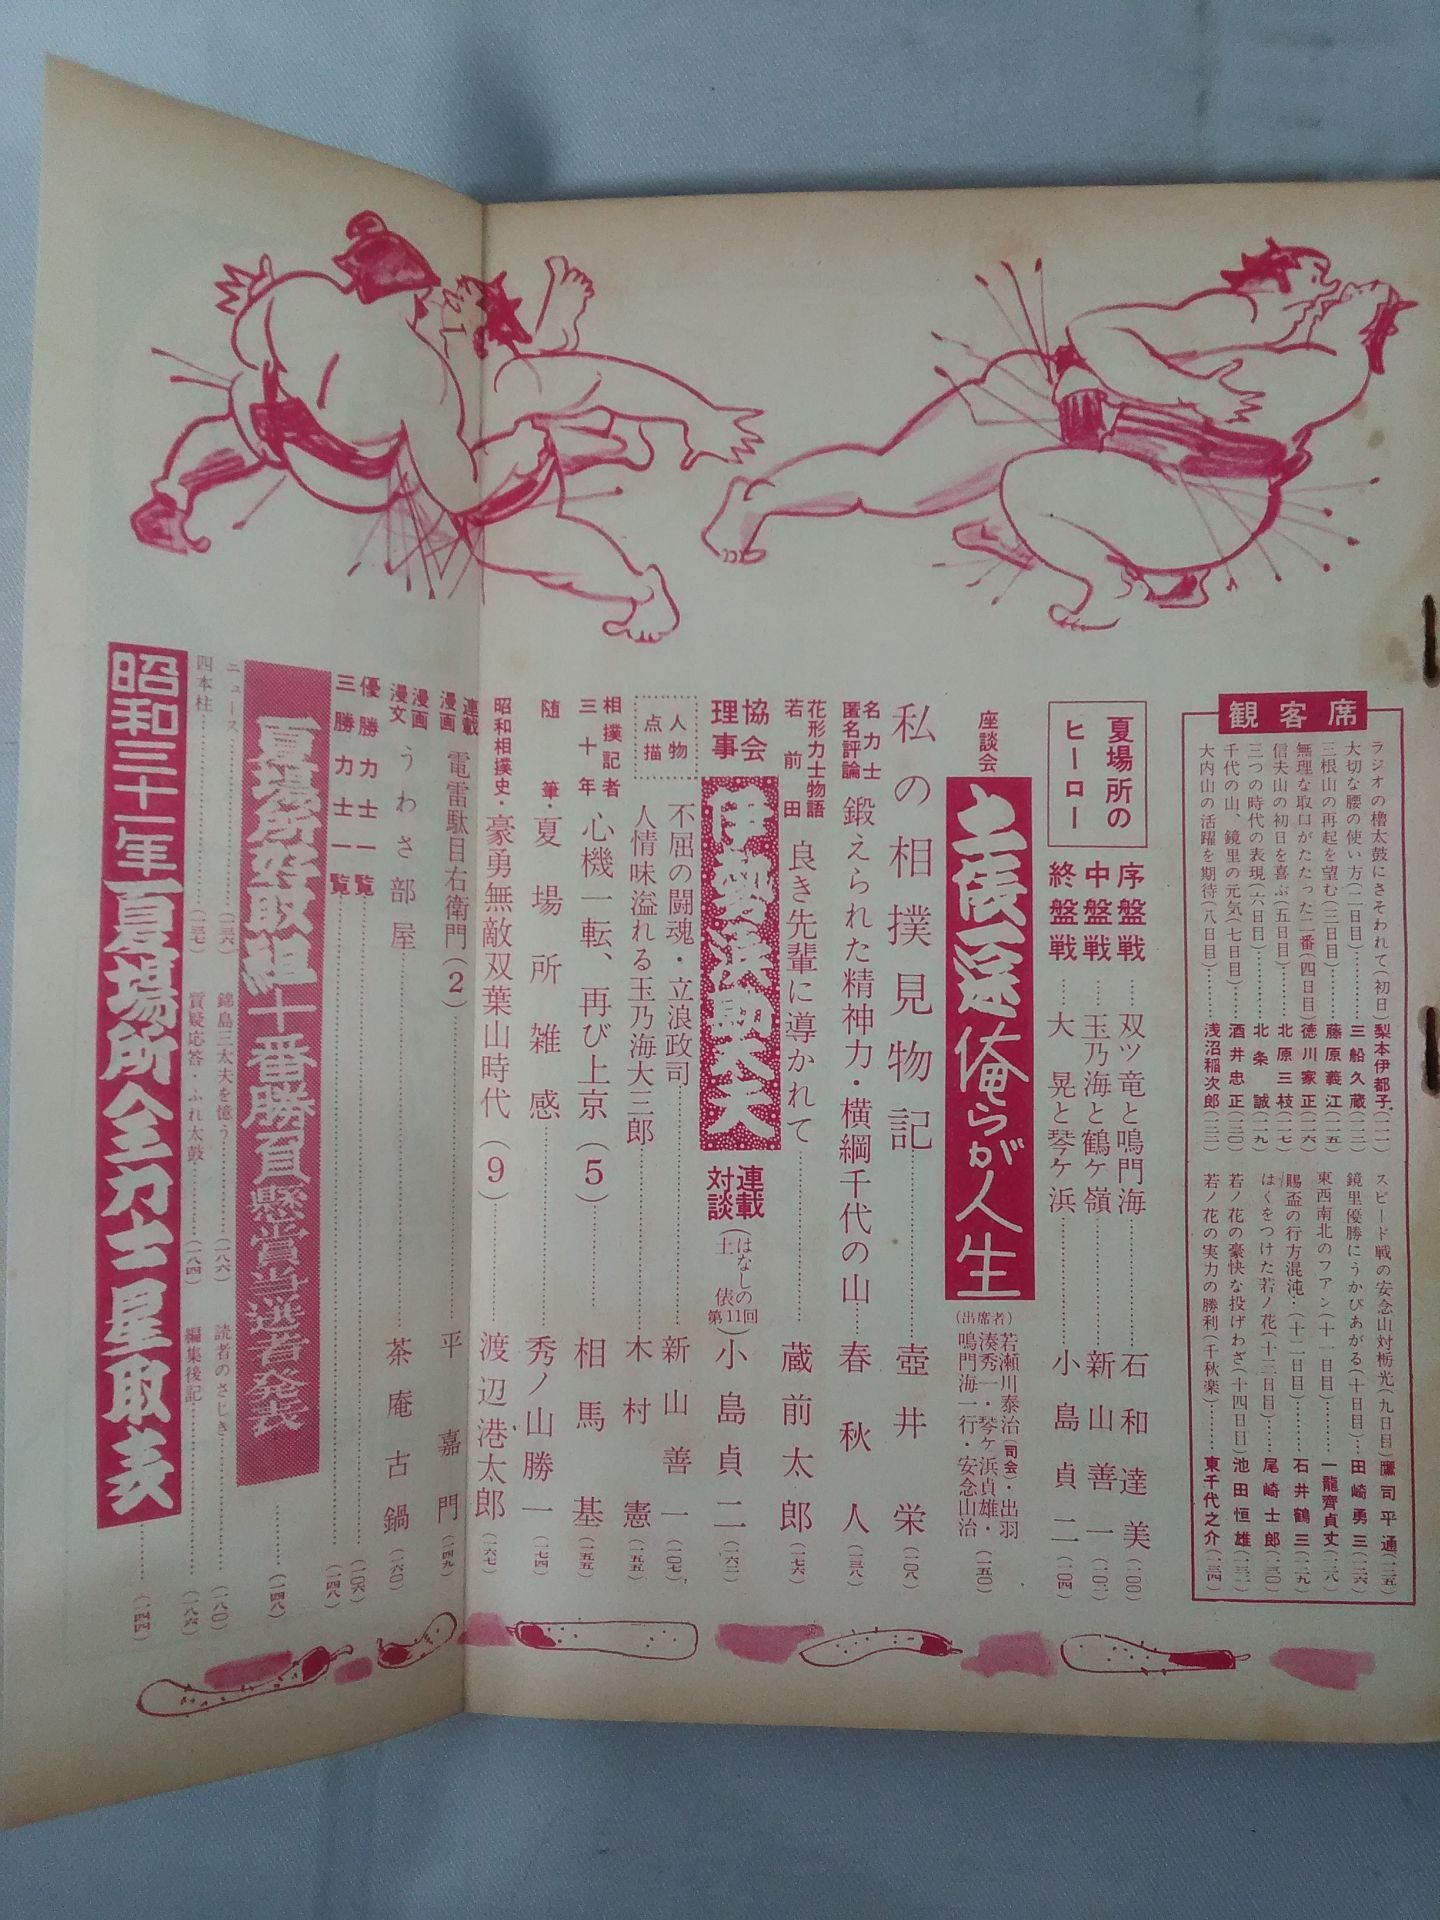 観客席
ラジオの櫓太鼓にさそわれて(初日)
梨本伊都子‥(一二一)
大切な腰の使い方(二日目)………三船久蔵(一二二)
三根山の再起を望む(三日目)………藤原義江(一二五)
無理な取口がたたった二番(四日目)徳川家正(一二六)
信夫山の初日を喜ぶ(五日目)……北原三枝(一二七)
三つの時代の表現(六日目)………北条誠(一二九)
千代の山、鏡里の元気(七日目)……酒井忠正(一三〇)
大内山の活躍を期待(八日目)……浅沼稲次郎(一三二)
スピード戦の安念山対栃光(九日目)鷹司平通(一三五)
鏡里優勝にうかびあがる(十日目)…田崎勇三(一二六)
東西南北のフアン(十一日目)……一龍齊貞丈(一二八)
賜盃の行方混沌・(十二日目)……石井鶴三(一二九)
はくをつけた若ノ花(十三日目)……尾崎士郎(一三〇)
若ノ花の豪快な投げわざ(十四日目)池田恒雄(一三二)
若ノ花の実力の勝利(千秋楽)……東千代之介(一三四)
夏場所の
ヒーロー
序盤戦……双ツ竜と鳴門海…………石和達美(一〇〇)
中盤戦……玉乃海と鶴ケ嶺…………新山善一(一〇二)
終盤戦……大晃と琴ケ浜…………小島貞二(一〇四)
座談会
土俵一途俺らが人生
(出席者)
若瀬川泰治(司会)・出羽
湊秀一・琴ケ浜貞雄・
鳴門海一行・安念山治
(一五〇)
私の相撲見物記…………壺井栄(一〇八)
名力士
匿名評論
鍛えられた精神力・横綱千代の山……春秋人(一三八)
花形力士物語
若前田
良き先輩に導かれて…………蔵前太郎(一七六)
協会
理事
伊勢ヶ浜勘太夫
連載
対談
(はなしの
土俵
第11回)
小島貞二(一六二)
人物
点描
不屈の闘魂・立浪政司…………新山善一(一〇七)
人情味溢れる玉乃海大三郎…………木村憲(一五五)
相撲記者
三十年
心機一転、再び上京(5)…………相馬基(一五五)
随筆・夏場所雑感…………秀ノ山勝一(一七四)
昭和相撲史・豪勇無敵双葉山時代(9)………渡辺港太郎(一六七)
連載
漫画
電雷駄目右衛門(2)…………平嘉門(一四九)
漫画
漫文
うわさ部屋…………茶庵古鍋(一六〇)
優勝力士一覧…………(一〇六)
三勝力士一覧…………(一四八)
夏場所好取組十番勝負懸賞当選者発表……(一四八)
ニュース…………(一三六)
錦島三太夫を憶う…………(一八六)
読者のさじき…………(一八〇)
四本柱…………(一三七)
質疑応答・ふれ太鼓…………(一八四)
編集後記…………(一八六)
昭和三十一年夏場所全力士星取表……(一四四)